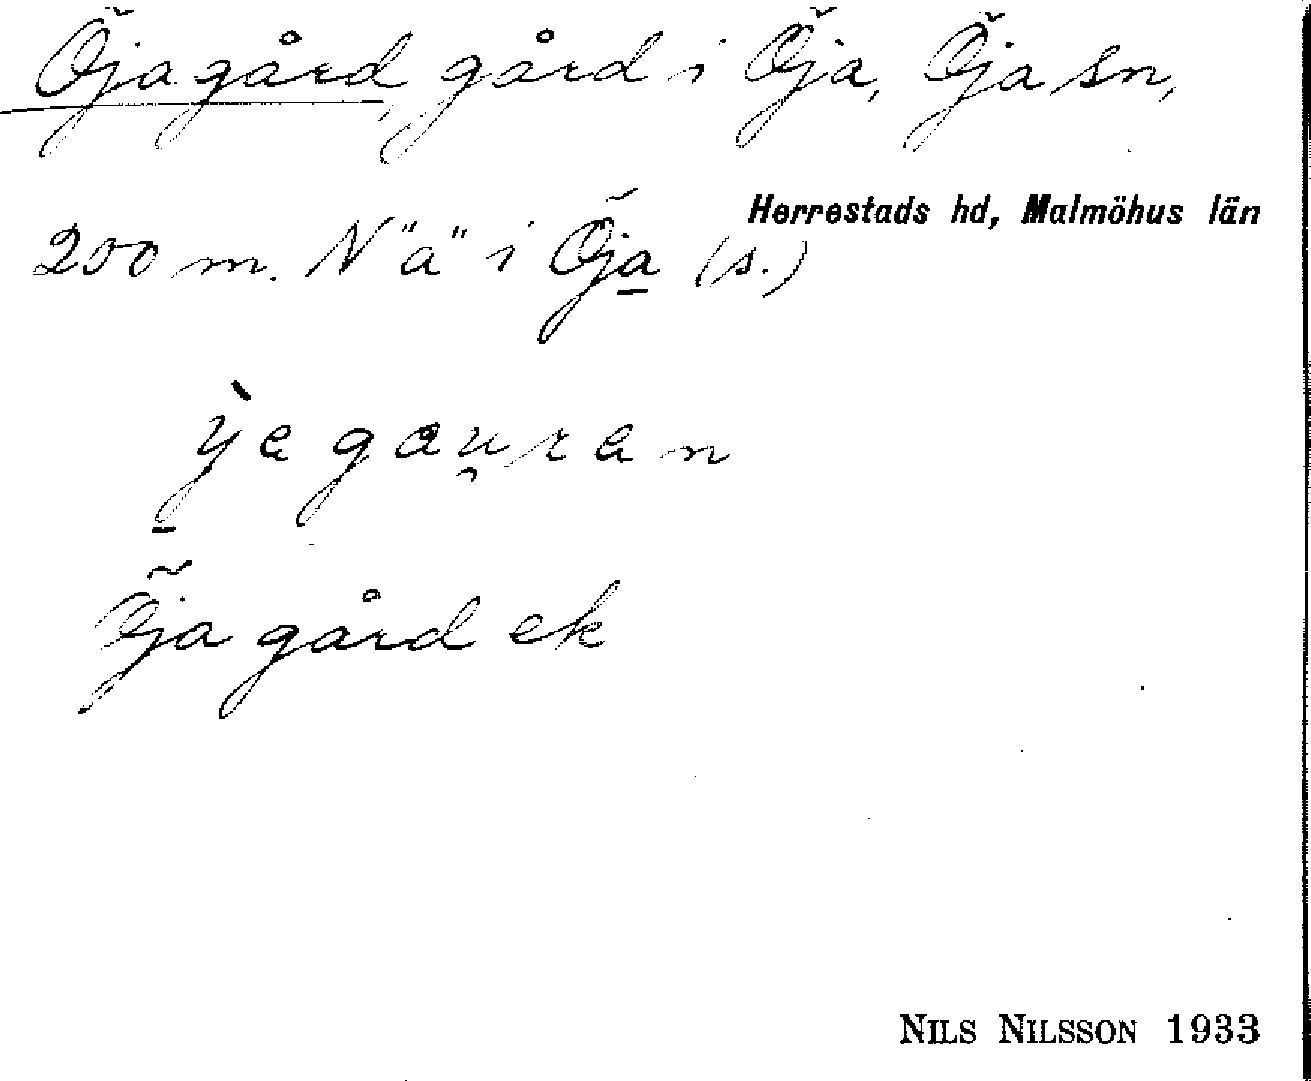 Öjagård, gård i Öja, Öja sn,
Herrestads hd, Malmöhus län
200 m. N "a" i Öja (s.)
ỳa gau̯ran
Öja gård ek
NILS NILSSON 1933